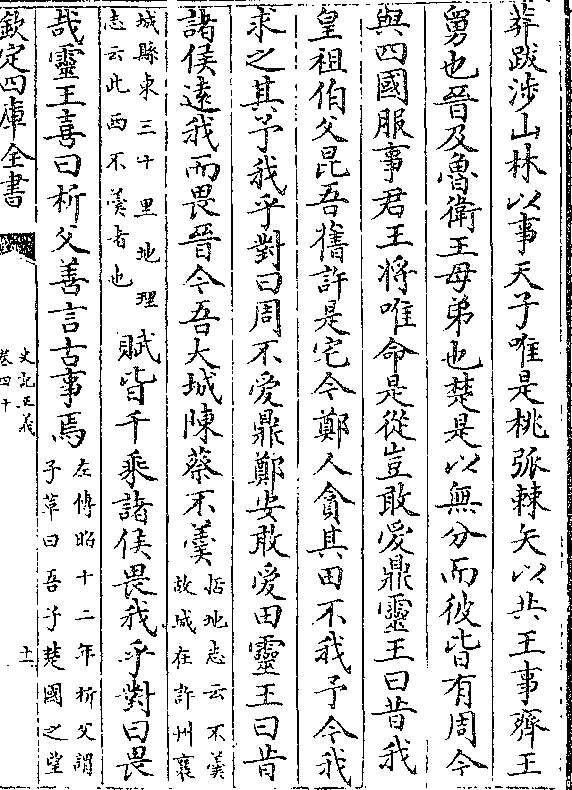 莽跋涉山林以事天子唯是桃弧棘矢以共王事齊王
舅也晉及魯衛王母弟也楚是以無分而彼皆有周今
與四國服事君王將唯命是從豈敢愛鼎靈王曰昔我
皇祖伯父昆吾舊許是宅今鄭人貪其田不我予今我
求之其予我乎對曰周不愛鼎鄭安敢愛田靈王曰昔
諸侯遠我而畏晉今吾大城陳蔡不羹
括地志云不羹
故城在許州襄
城縣東三十里地理
志云此西不羹者也
賦皆千乘諸侯畏我乎對曰畏
哉靈王喜曰析父善言古事焉
左傳昭十二年析父謂
子革曰吾子楚國之望
欽定四庫全書
史記正義
卷四十
十一